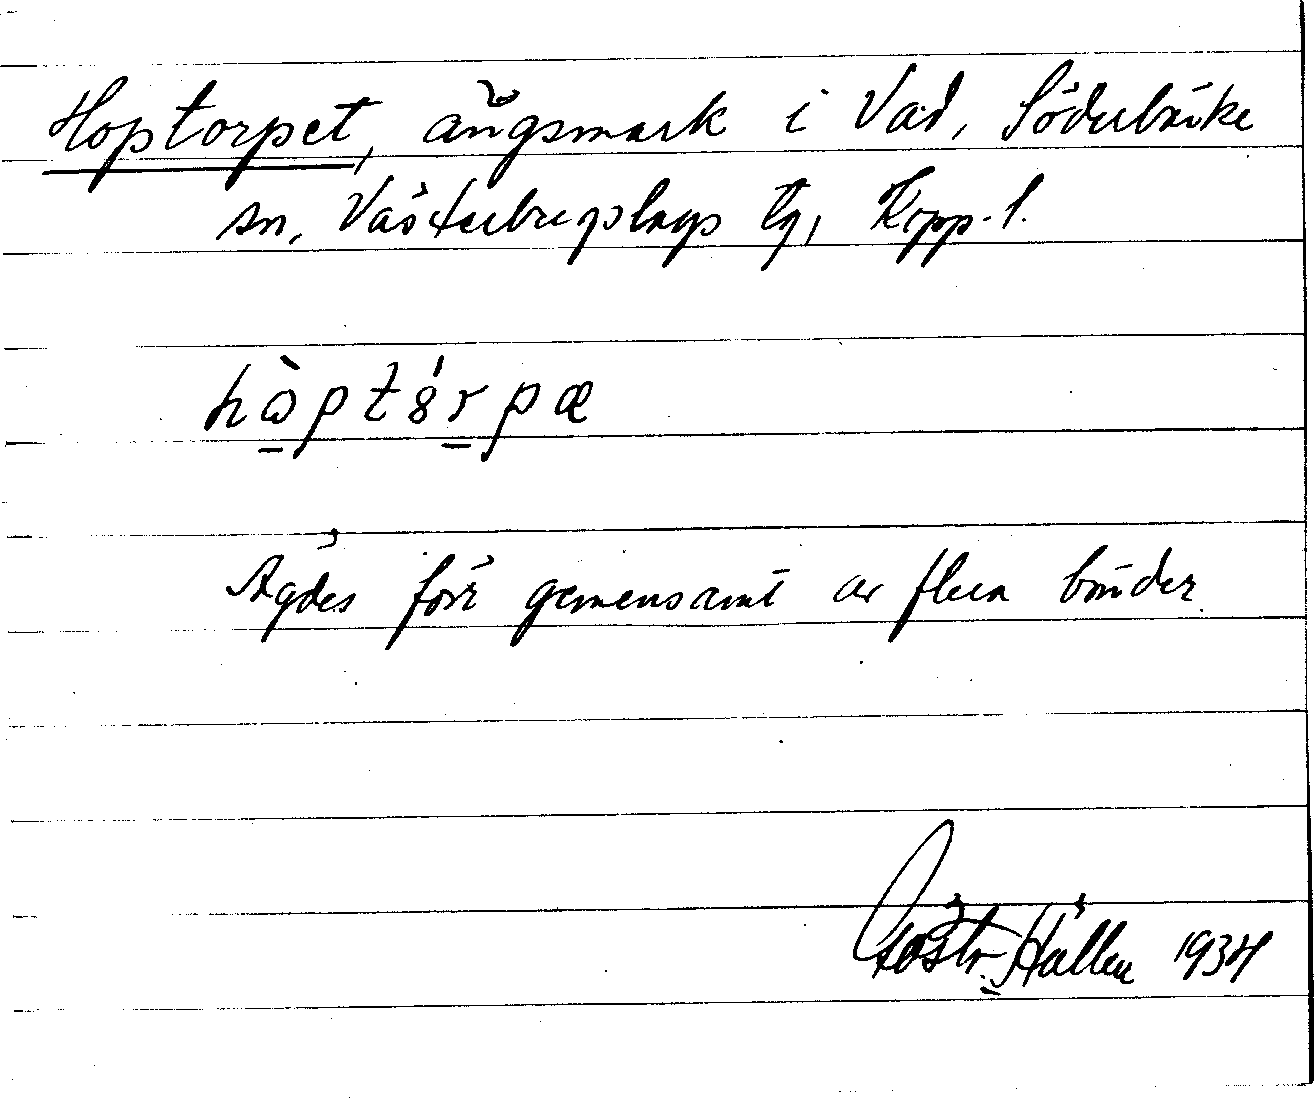 Hoptorpet, ängsmark i Vad, Söderbärke
sn, Västerbergslags tg, Kopp. l.
hòptórpæ
Ägdes förr gemensamt av flera bönder.
Gösta Hallén 1934